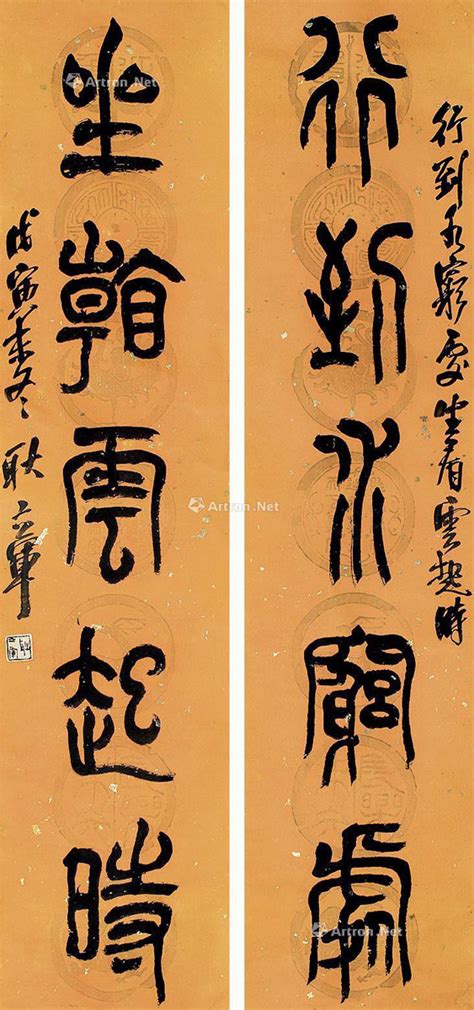 行到水窮處坐看雲起時
行到水窮處
坐看雲起時
戊寅季冬 耿
Artron.Net
Artron.Net
Artron.Net